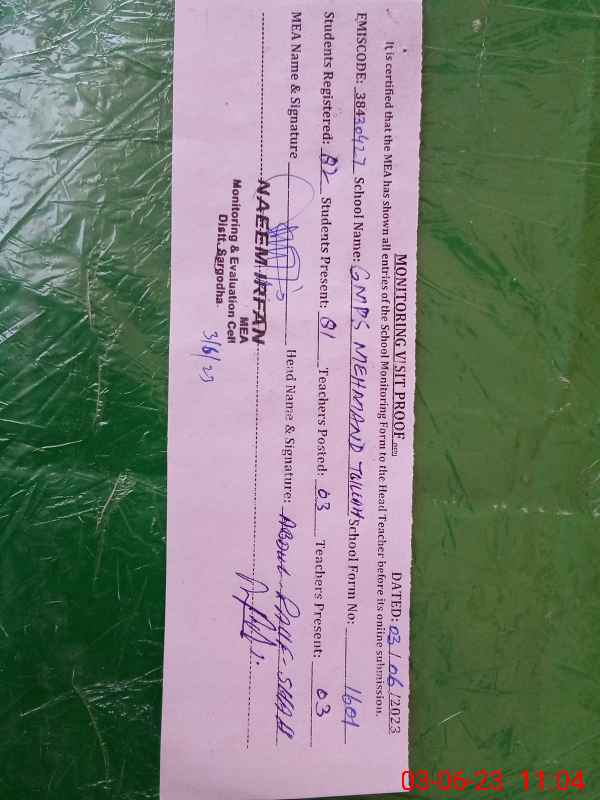 MONITORING VISIT PROOF DATED: 03/06/2023
It is certified that the MEA has shown all entries of the School Monitoring Form to the Head Teacher before its online submission.
EMISCODE: 38430427 School Name: GMPS MEHMAND School Form No: 1601
Students Registered: 82 Students Present: 81 Teachers Posted: 03 Teachers Present: 03
MEA Name & Signature Head Name & Signature: ABDUL RAUF SHAH
NAEEM IRFAN
MEA
Monitoring & Evaluation Cell
Distt. Sargodha.
3/6/23
03-06-23 11:04